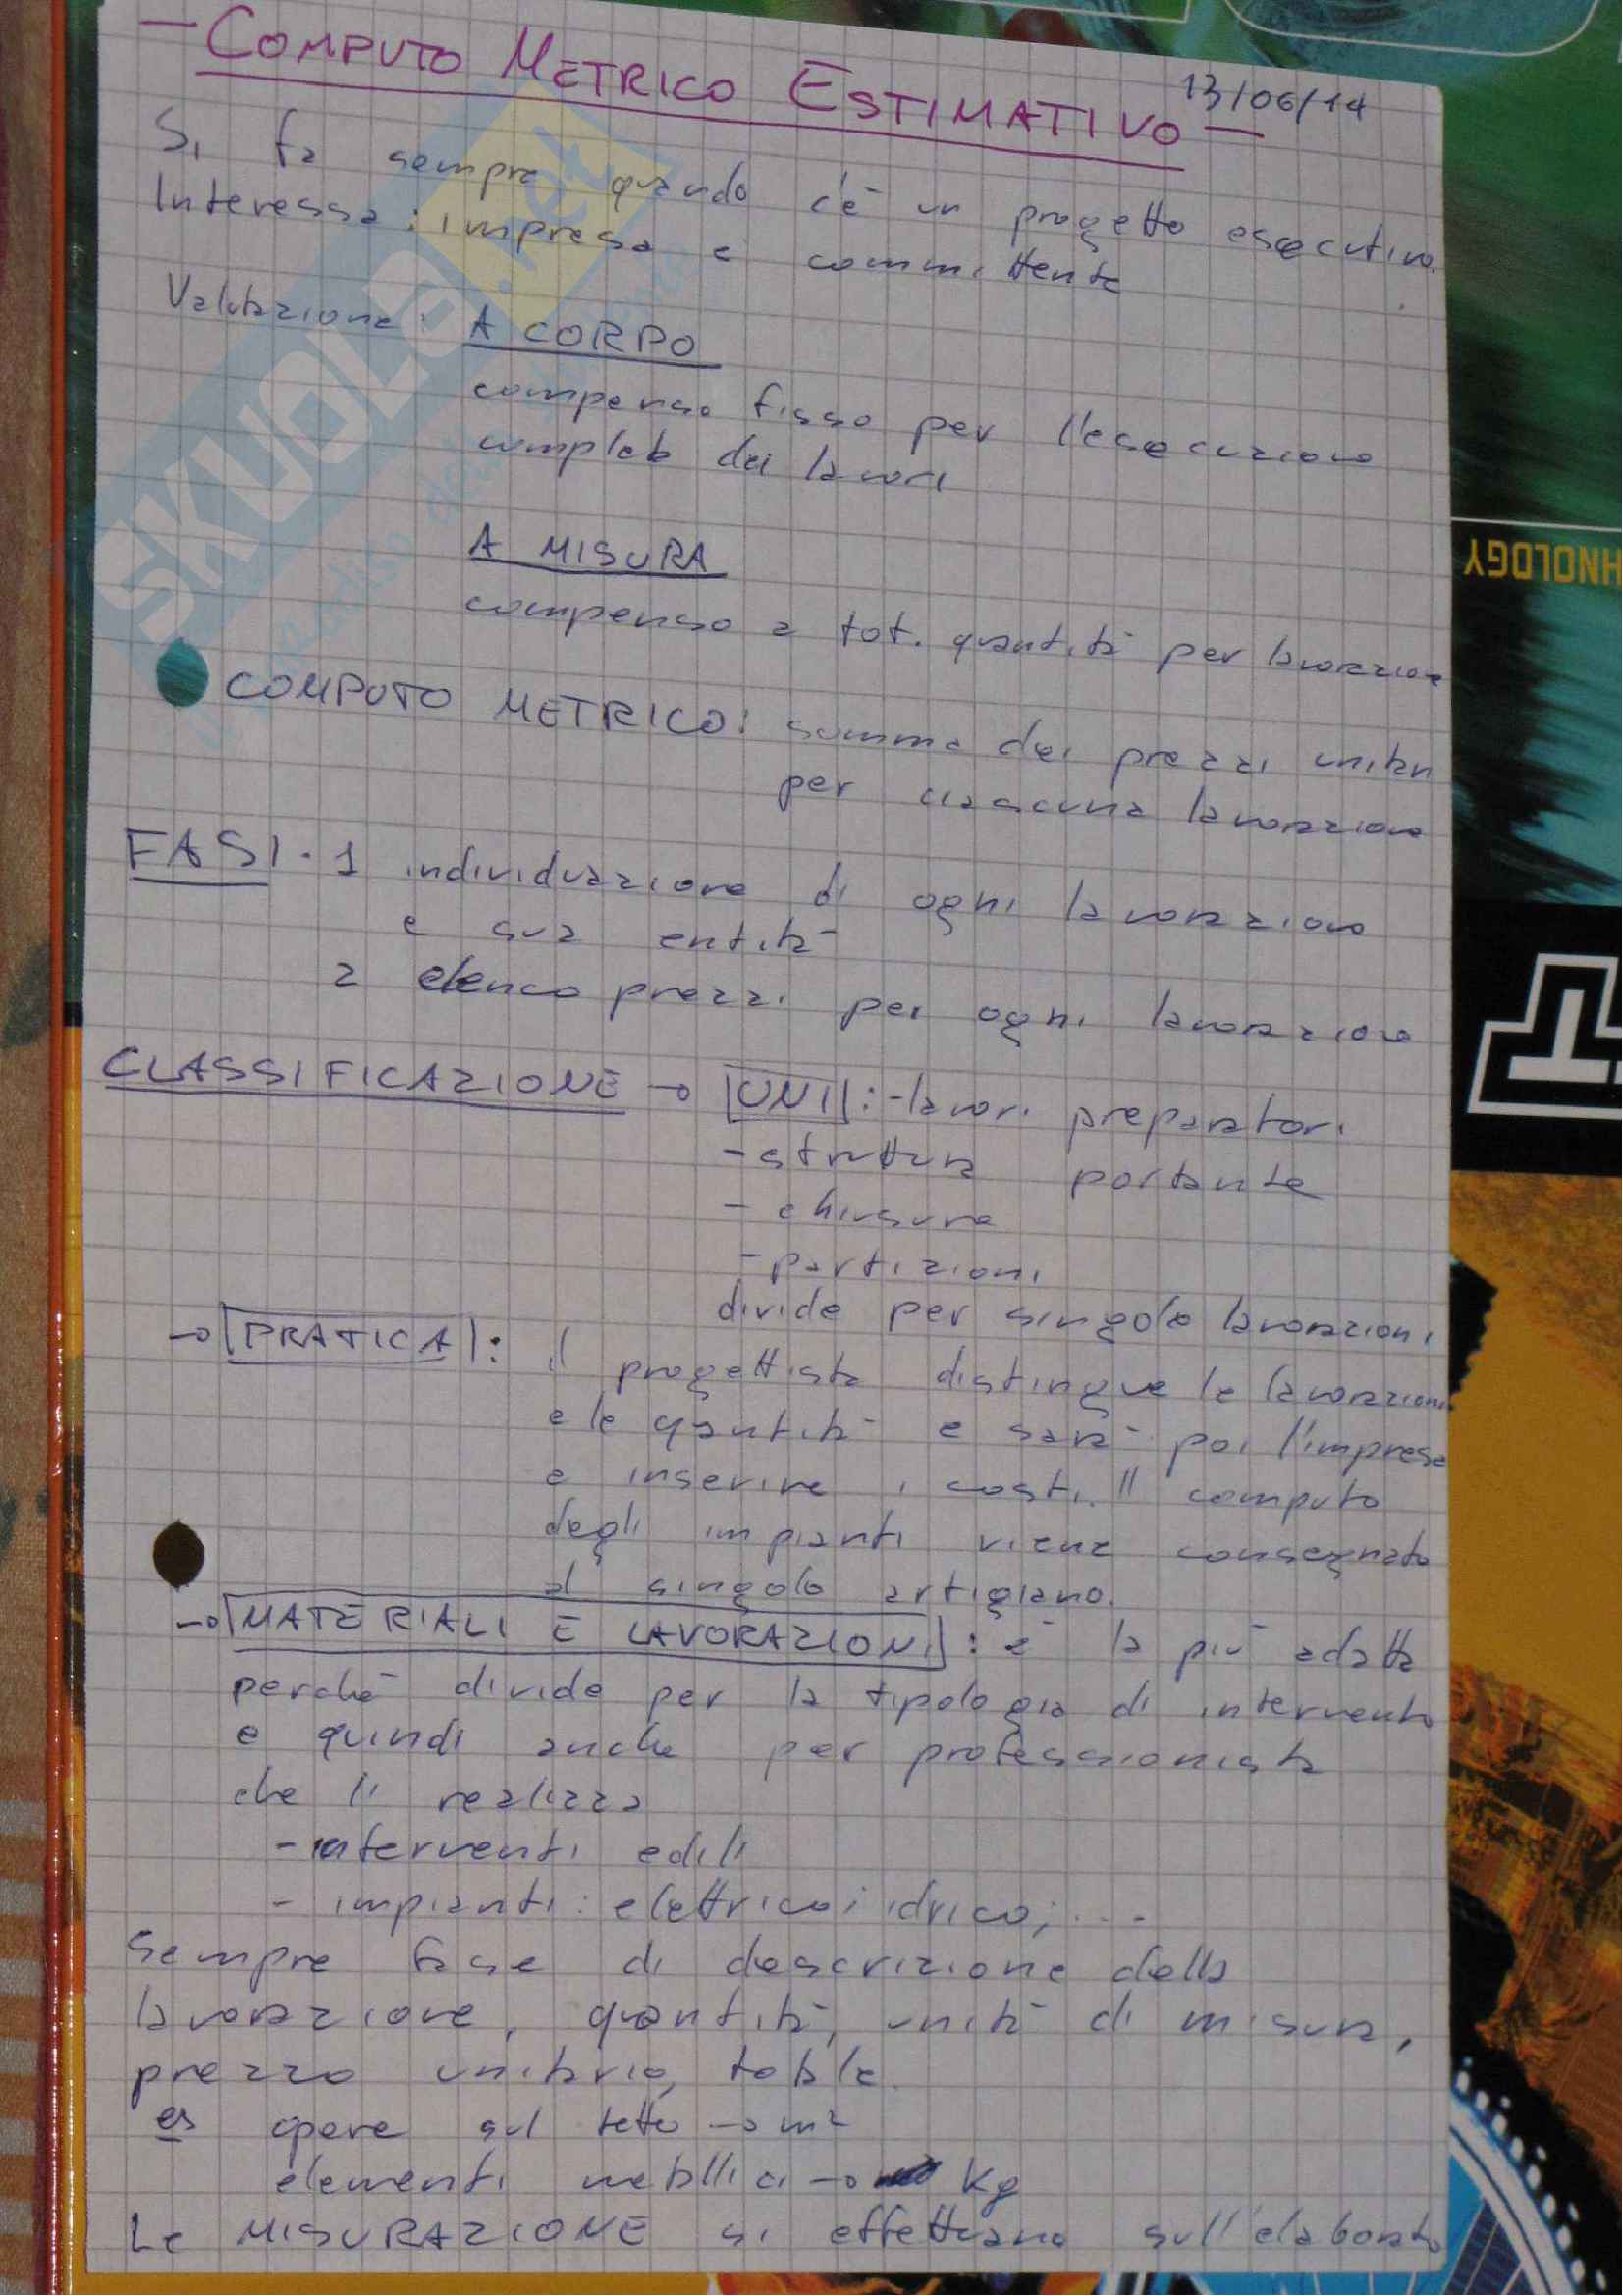 - COMPUTO METRICO ESTIMATIVO -
13/06/14
Si fa sempre quando c'è un progetto esecutivo.
Interessa: impresa e committente
Valutazione: A CORPO
compenso fisso per l'esecuzione
completa dei lavori
A MISURA
compenso a tot. quantità per lavorazione
COMPUTO METRICO: somma dei prezzi unitari
per ciascuna lavorazione
FASI. 1 individuazione di ogni lavorazione
e sua entità
2 elenco prezzi per ogni lavorazione
CLASSIFICAZIONE → UNI: - lavori preparatori
- struttura portante
- chiusure
- partizioni
divide per singole lavorazioni
→ PRATICA: il progettista distingue le lavorazioni
e le quantità e sarà poi l'impresa
a inserire i costi. Il computo
degli impianti viene consegnato
al singolo artigiano.
→ MATERIALI E LAVORAZIONI: è la più adatta
perchè divide per la tipologia di intervento
e quindi anche per professionista
che li realizza
- interventi edili
- impianti: elettrico; idrico; ...
Sempre fase di descrizione della
lavorazione, quantità, unità di misura,
prezzo unitario, totale.
es opere sul tetto → m²
elementi metallici → kg
Le MISURAZIONE si effettuano sull'elaborato
SKUOLA.net
HNOLOGY